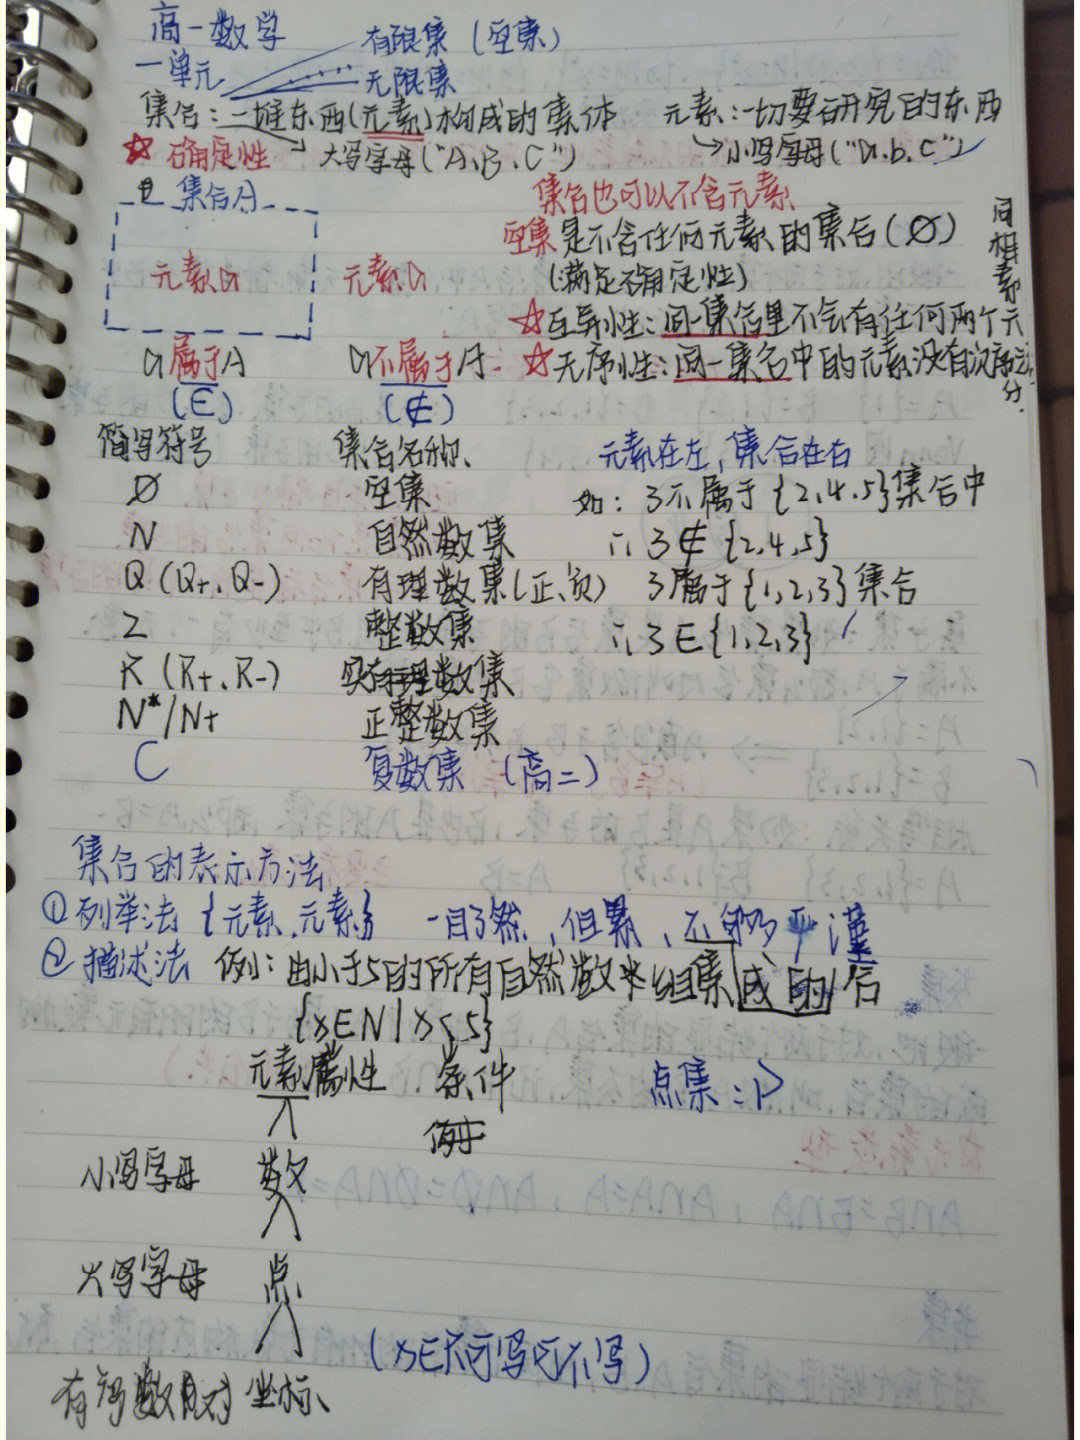 高一数学
一单元
有限集（空集）
无限集
集合：一堆东西(元素)构成的集体
元素：一切要研究的东西
☆ 确定性
大写字母("A、B、C")
小写字母("a.b.c")
集合A
集合也可以不含元素
空集是不含任何元素的集合(∅)
元素a
元素a
(满足确定性)
☆互异性：同一集合里不会有任何两个元素相同
☆无序性：同一集合中的元素没有次序之分.
a属于A
a不属于A
(∈)
(∉)
简写符号
集合名称
元素在左，集合在右
∅
空集
如：3不属于{2,4,5}集合中
N
自然数集
∴3∉{2,4,5}
Q (Q+、Q-)
有理数集(正、负)
3属于{1,2,3}集合
Z
整数集
∴3∈{1,2,3}
R (R+、R-)
实数集
N*/N+
正整数集
C
复数集 (高二)
集合的表示方法
①列举法 {元素、元素} 一目了然，但累、不够严谨
②描述法 例：由小于5的所有自然数组成的集合
{x∈N|x<5}
元素属性 条件
点集：P
小写字母 数
大写字母 点
(x∈R可写可不写)
有序数对 坐标